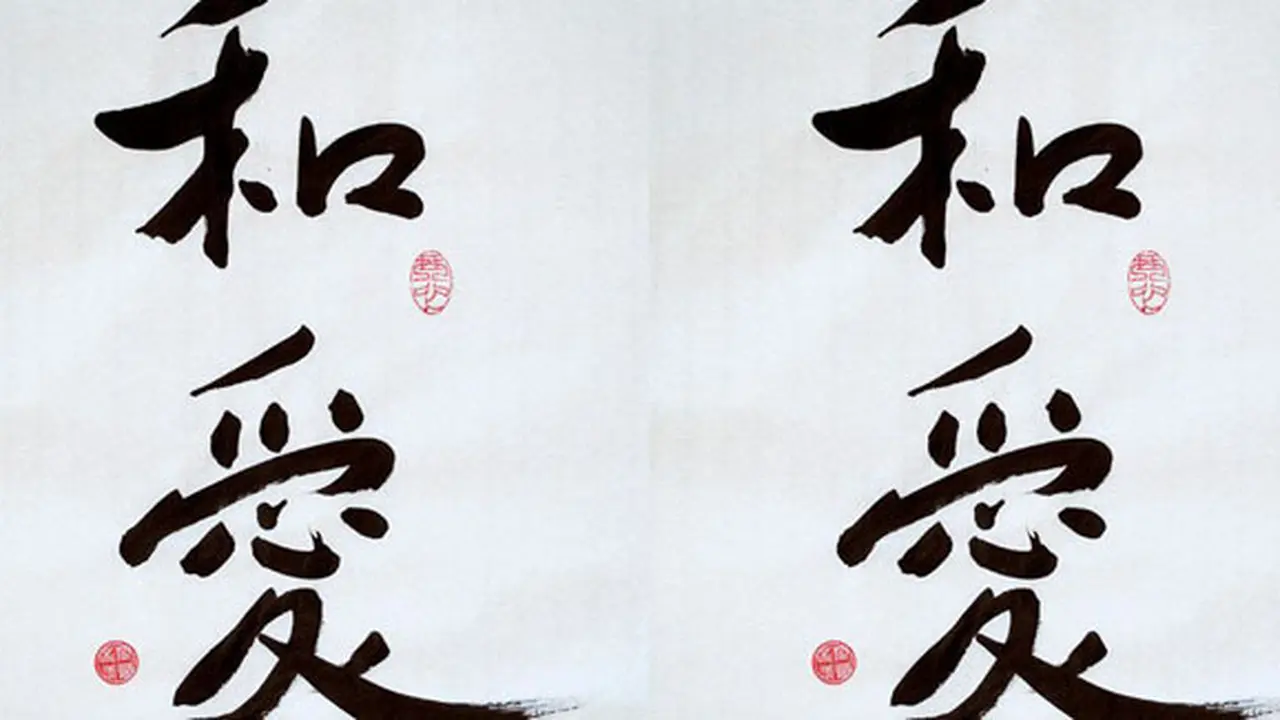 和 和
愛 愛